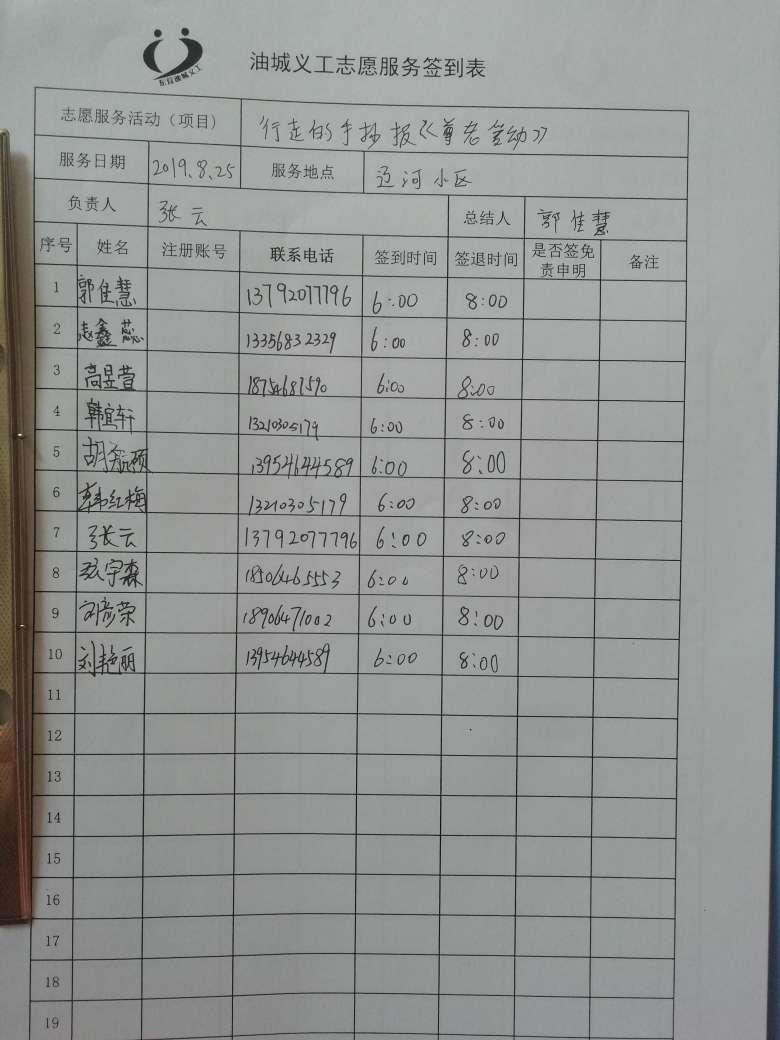 东营油城义工
油城义工志愿服务签到表
志愿服务活动（项目） 行走的手抄报《尊老
服务日期 2019.8.25 服务地点 辽河小区
负责人 张云 总结人 郭佳慧
序号 姓名 注册账号 联系电话 签到时间 签退时间 是否签免责申明 备注
1 郭佳慧 13792077796 6:00 8:00
2 鑫蕊 13356832329 6:00 8:00
3 高昱萱 18754687590 6:00 8:00
4 韩宜轩 13210305179 6:00 8:00
5 胡航硕 13954644589 6:00 8:00
6 韩红梅 13210305179 6:00 8:00
7 张云 13792077796 6:00 8:00
8 宇森 18506465553 6:00 8:00
9 刘彦荣 18906471002 6:00 8:00
10 刘艳丽 13954644589 6:00 8:00
11
12
13
14
15
16
17
18
19